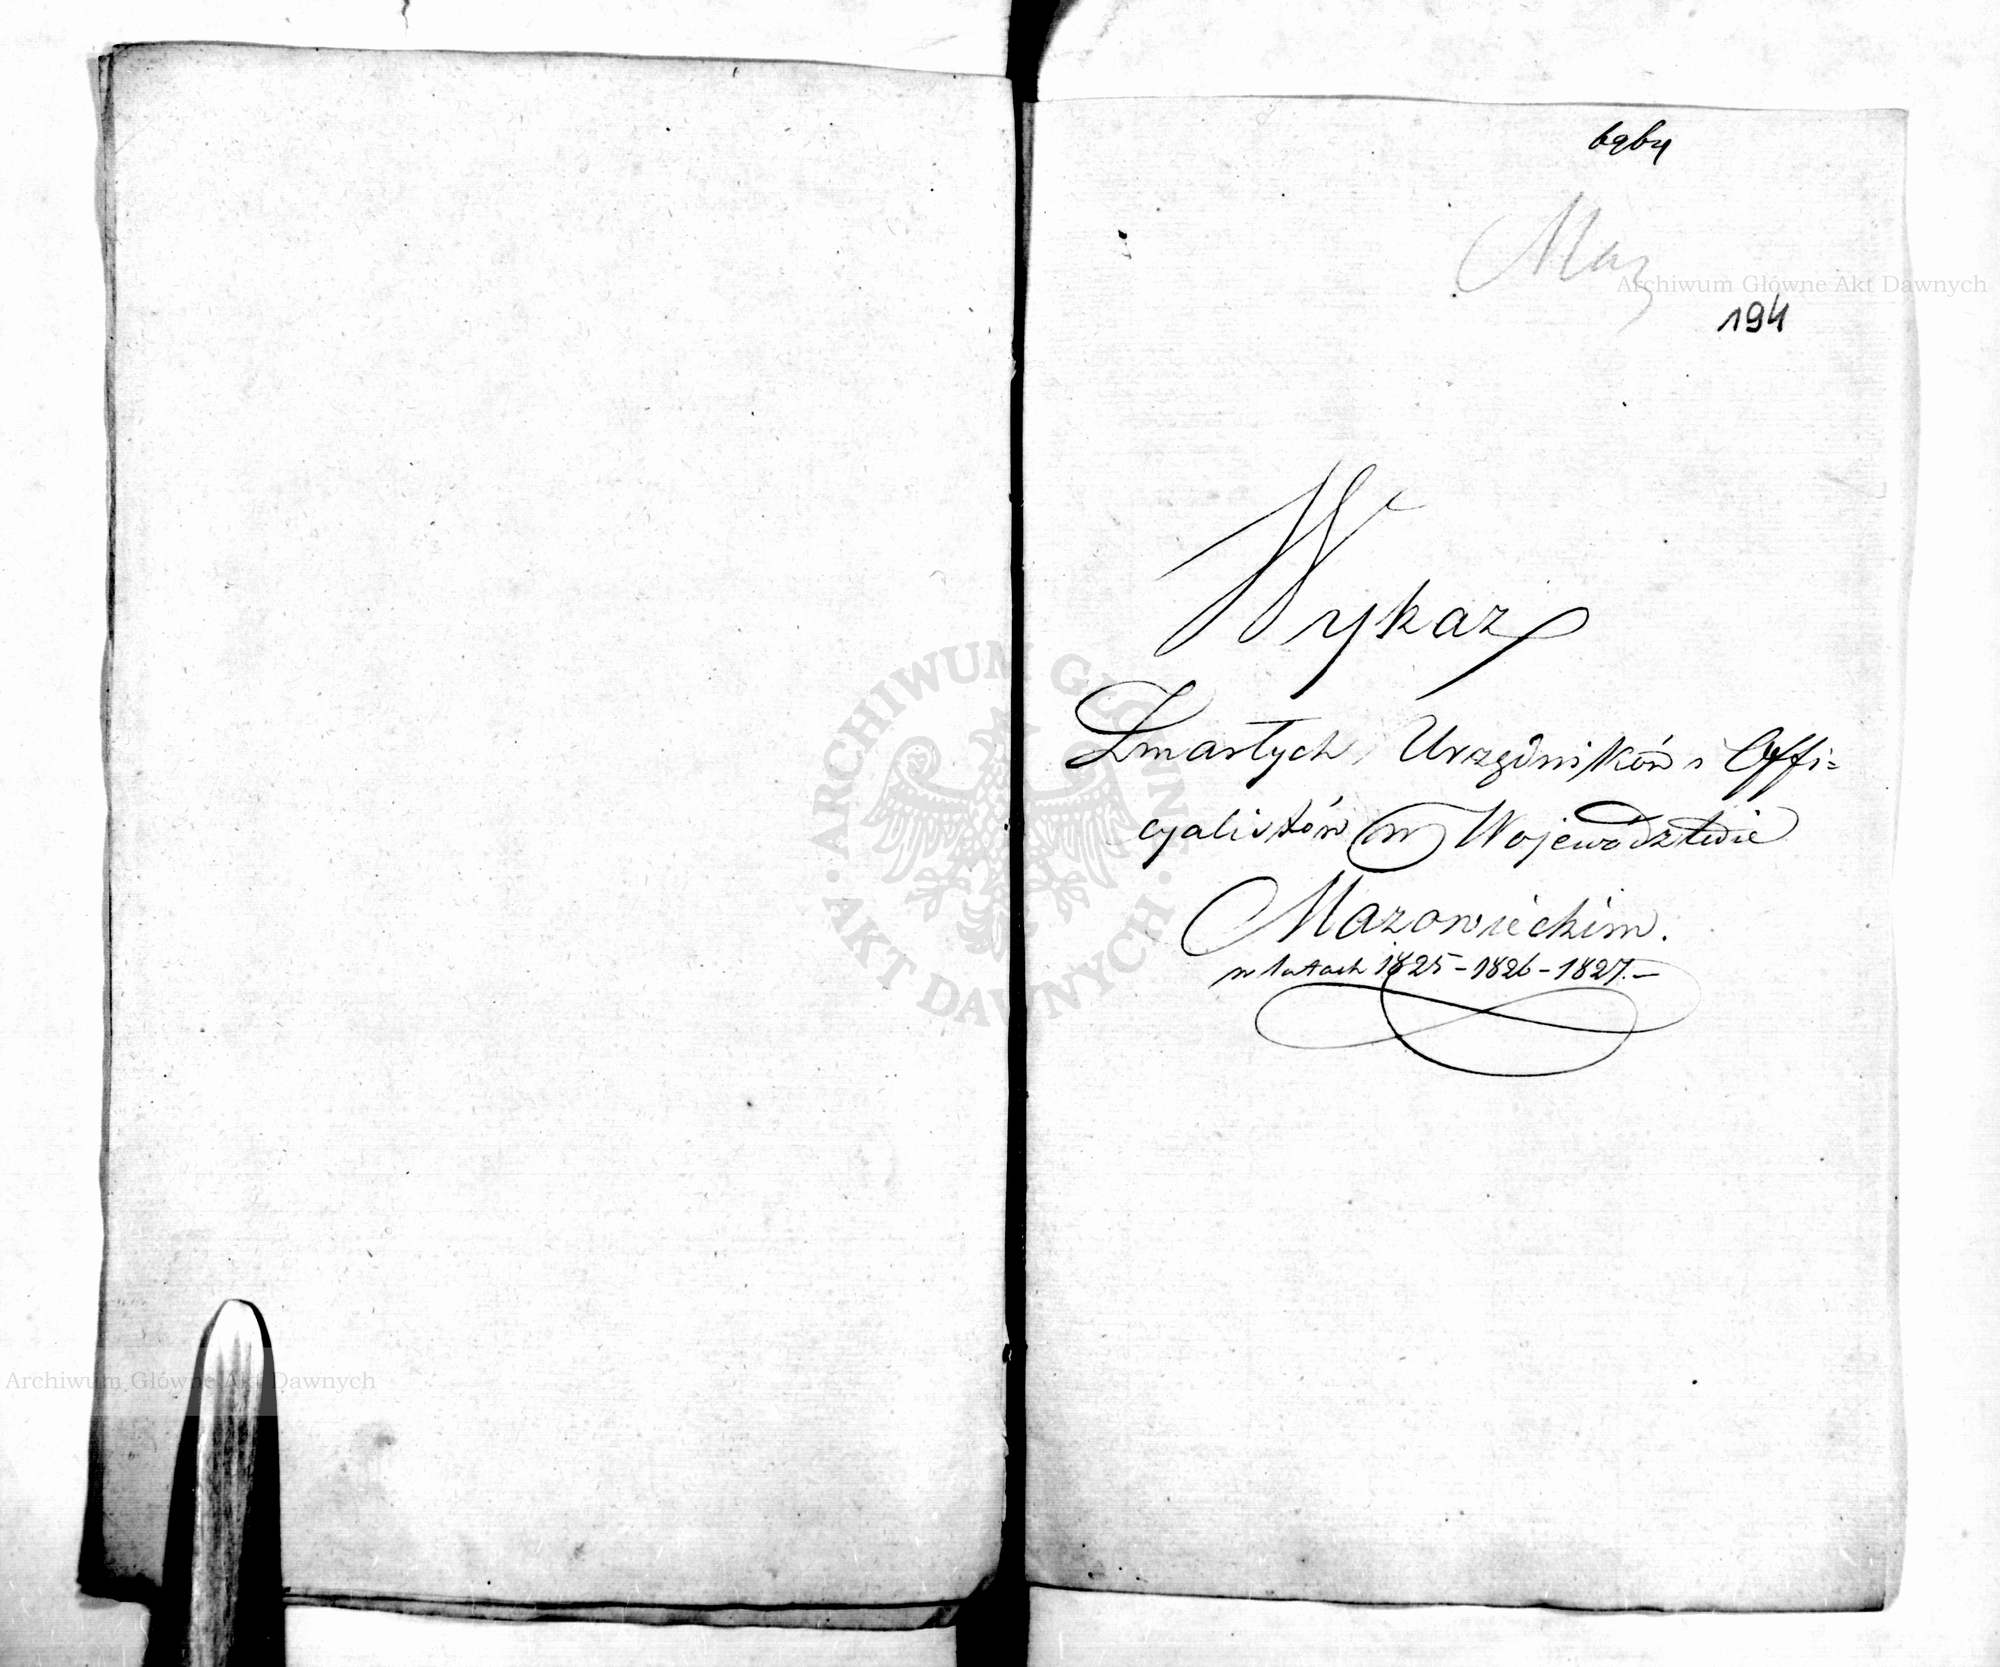 Maz
194
Wykaz
Zmarłych Urzędników i Offi=
cyalistów w Województwie
Mazowieckim.
w latach 1825 - 1826 - 1827. -
Archiwum Główne Akt Dawnych
ARCHIWUM GŁÓWNE
· AKT DAWNYCH ·
Archiwum Główne Akt Dawnych